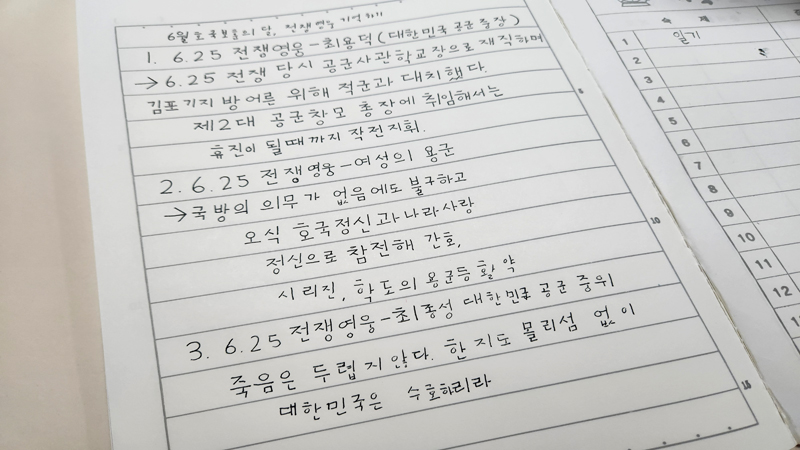 6월 호국보훈의 달, 전쟁영웅 기억하기
1. 6.25 전쟁영웅-최용덕(대한민국 공군 중장)
→6.25 전쟁 당시 공군사관학교장으로 재직하며
김포기지 방어른 위해 적군과 대치했다.
제2대 공군창모 총장에 취임해서는
휴진이 될때까지 작전지휘.
2. 6.25 전쟁영웅-여성의 용군
→국방의 의무가 없음에도 불구하고
오식 호국정신과나라사랑
정신으로 참전해 간호,
시리진, 학도의 용군등 활약
3. 6.25 전쟁영웅-최종성 대한민국 공군 중위
죽음은 두렵지않다. 한 지도 몰리섬 없이
대한민국은 수호하리라
5
10
15
숙제
1 일기
2
3
4
5
6
7
8
9
10
11
12